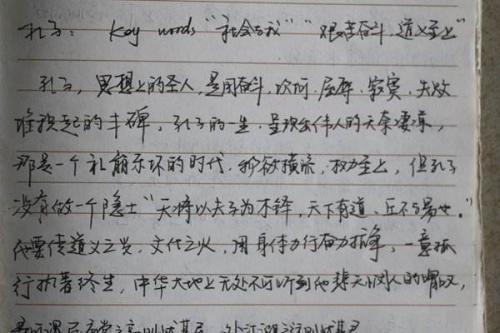 孔子： Key words "社会与我" "艰苦奋斗，道义至上"
孔子，思想上的圣人，是用奋斗、坎坷、屈辱、寂寞、失败
堆筑起的丰碑，孔子的一生，呈现出伟人的天条要素，
那是一个礼崩乐坏的时代，物欲横流，权力至上，但孔子
没有做一个隐士"天将以夫子为木铎，天下有道，丘不与易也。"
他要传道义之光，文化之火，用身体力行奋力抗争，一意孤
行执著终生，中华大地上无处不可听到他悲天悯人的喟叹，